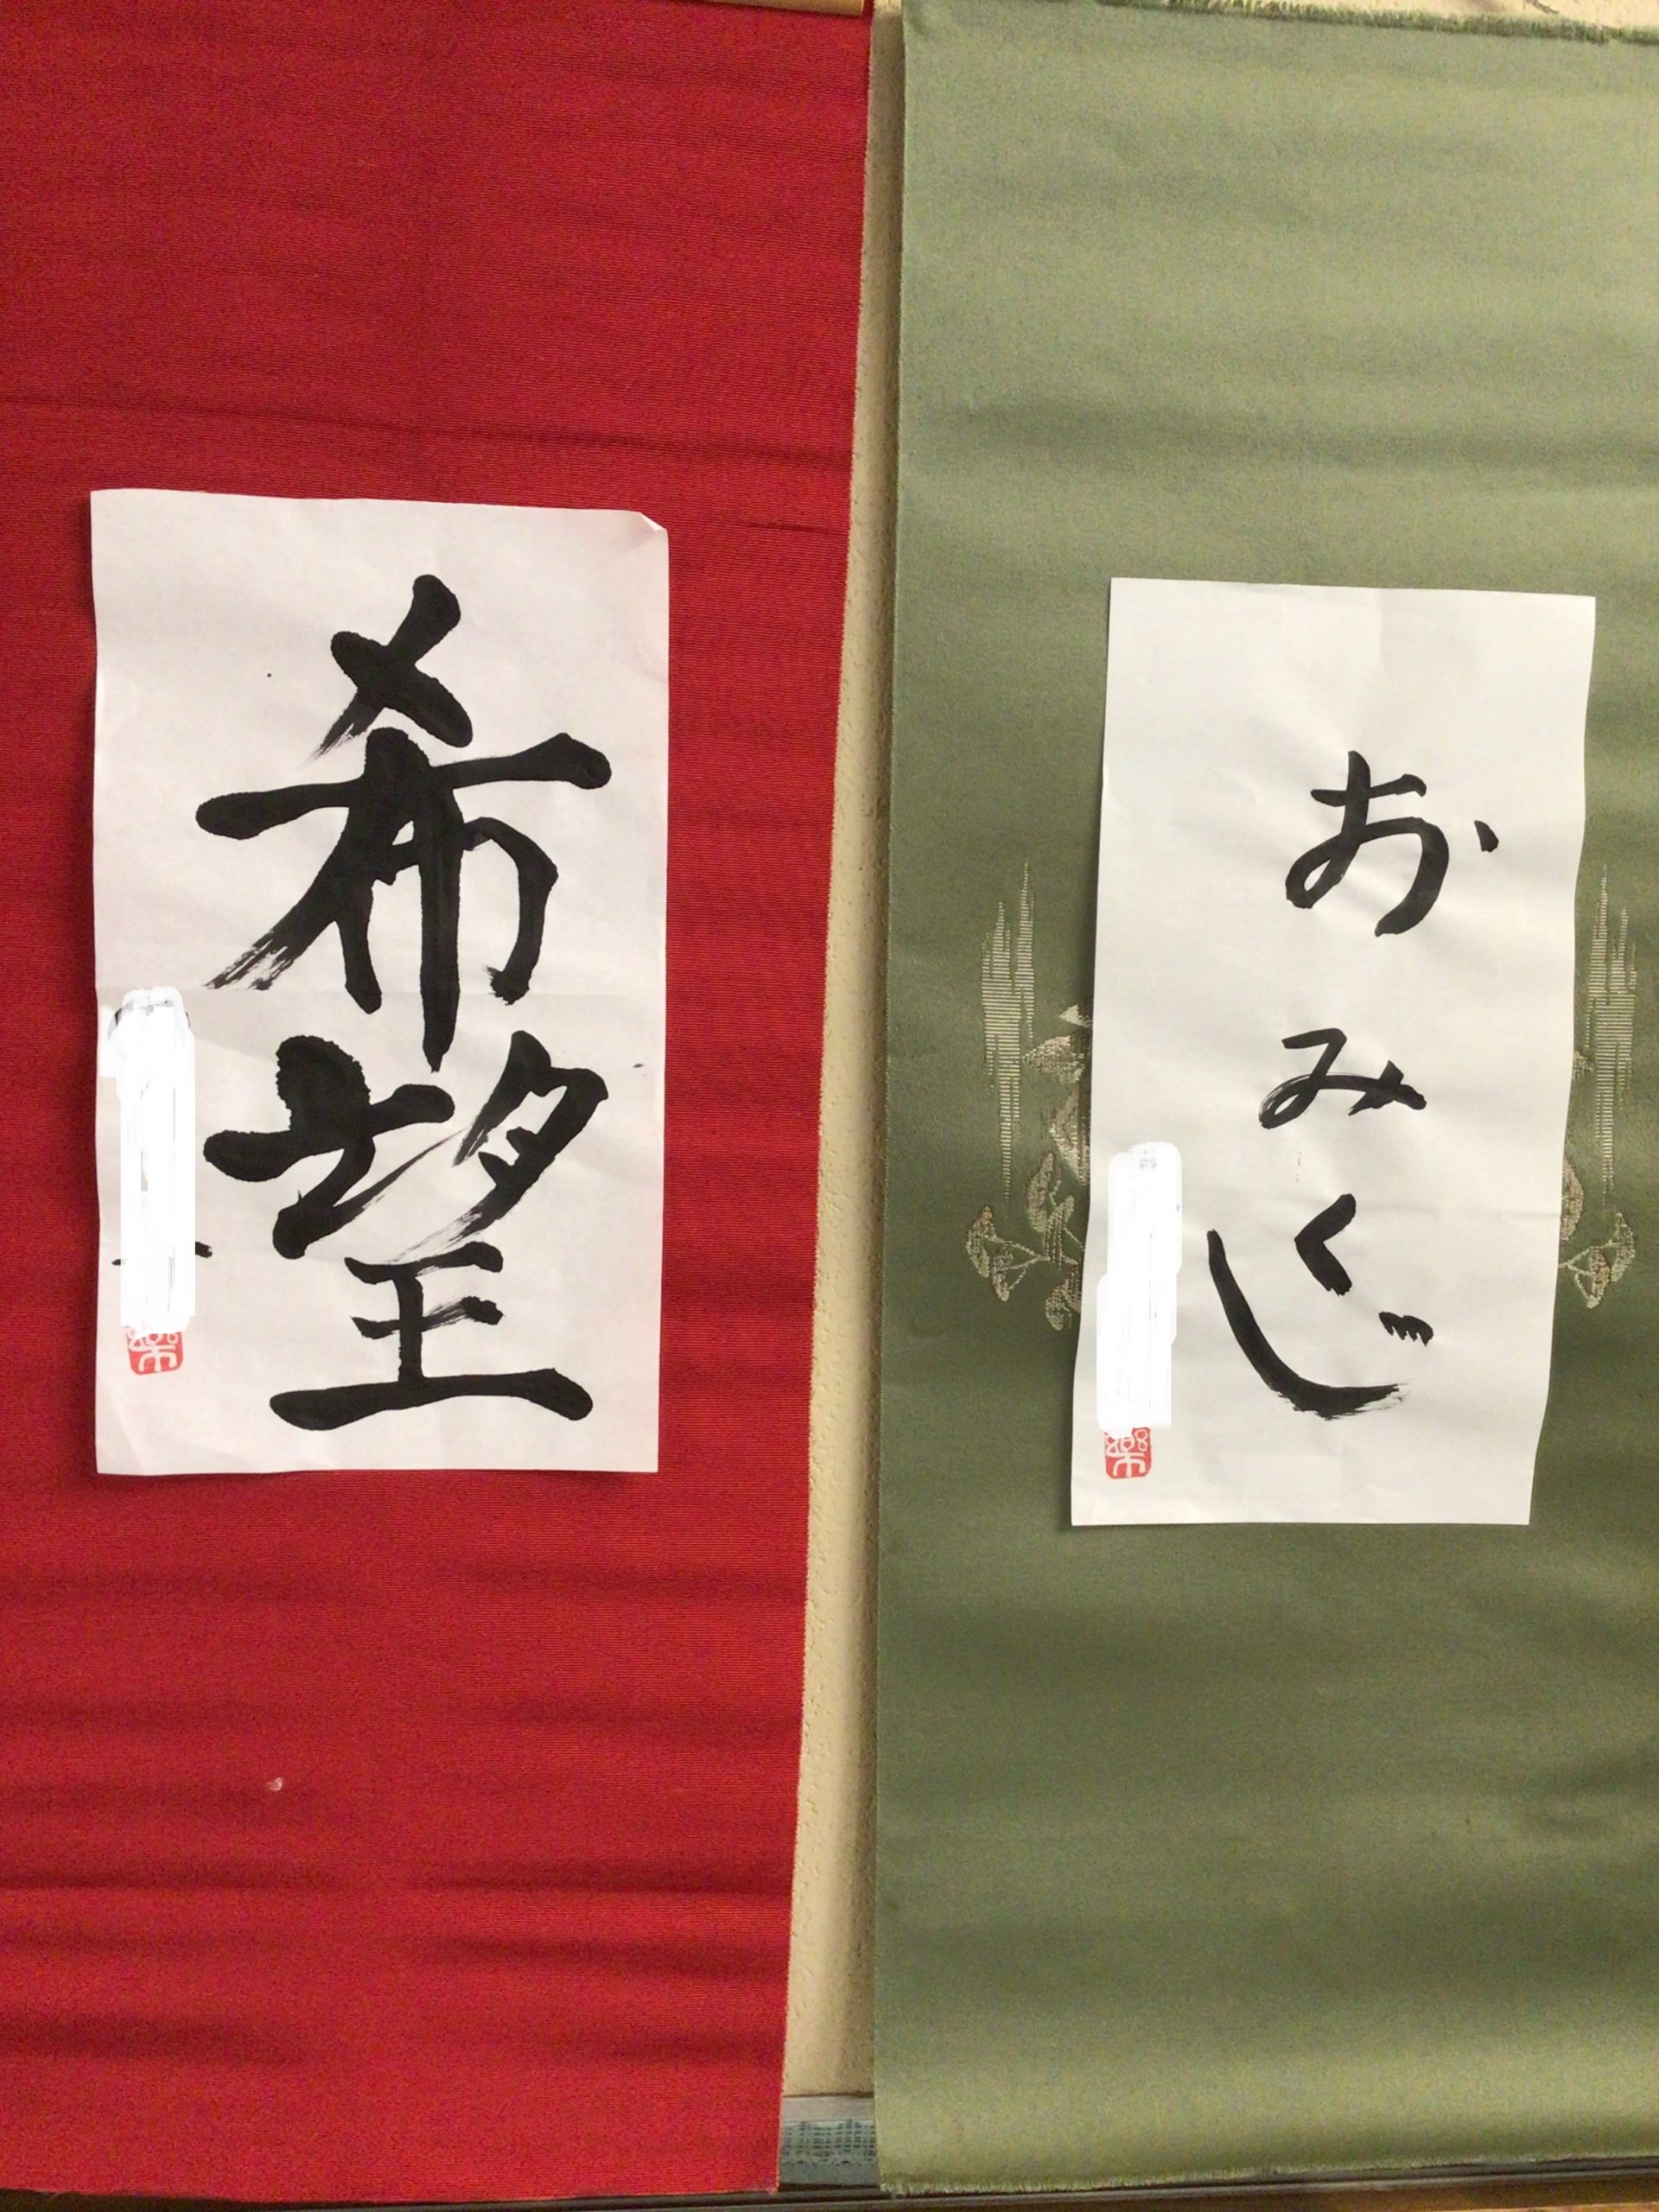 希望
おみくじ